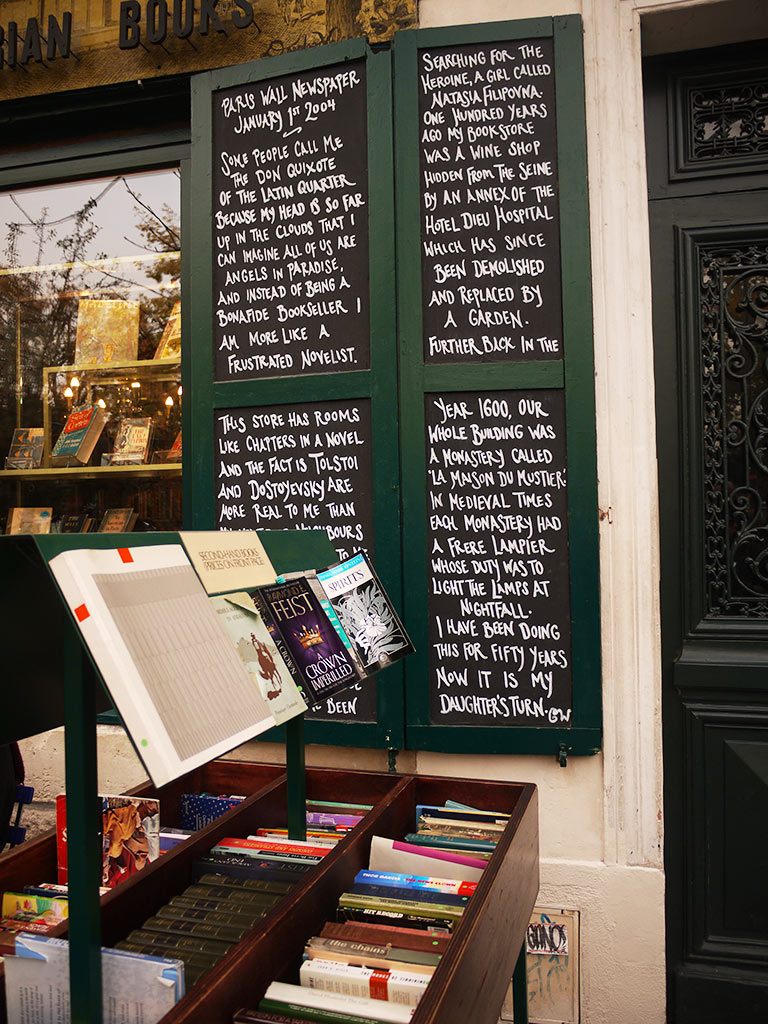 RIAN BOOKS
PARIS WALL NEWSPAPER
JANUARY 1ST 2004
SOME PEOPLE CALL ME
THE DON QUIXOTE
OF THE LATIN QUARTER
BECAUSE MY HEAD IS SO FAR
UP IN THE CLOUDS THAT I
CAN IMAGINE ALL OF US ARE
ANGELS IN PARADISE,
AND INSTEAD OF BEING A
BONAFIDE BOOKSELLER I
AM MORE LIKE A
FRUSTRATED NOVELIST.
THIS STORE HAS ROOMS
LIKE CHAPTERS IN A NOVEL
AND THE FACT IS TOLSTOI
AND DOSTOYEVSKY ARE
MORE REAL TO ME THAN
BOURS
TO
BEEN
SEARCHING FOR THE
HEROINE, A GIRL CALLED
NATASIA FILIPOVNA.
ONE HUNDRED YEARS
AGO MY BOOKSTORE
WAS A WINE SHOP
HIDDEN FROM THE SEINE
BY AN ANNEX OF THE
HOTEL DIEU HOSPITAL
WHICH HAS SINCE
BEEN DEMOLISHED
AND REPLACED BY
A GARDEN.
FURTHER BACK IN THE
YEAR 1600, OUR
WHOLE BUILDING WAS
A MONASTERY CALLED
'LA MAISON DU MUSTIER'.
IN MEDIEVAL TIMES
EACH MONASTERY HAD
A FRERE LAMPIER
WHOSE DUTY WAS TO
LIGHT THE LAMPS AT
NIGHTFALL.
I HAVE BEEN DOING
THIS FOR FIFTY YEARS
NOW IT IS MY
DAUGHTER'S TURN. GW
SECOND-HAND BOOKS
PRICES ON FRONT PAGE
RAYMOND E.
FEIST
A CROWN
IMPERILLED
A CROWN
SPIRITS
The chains